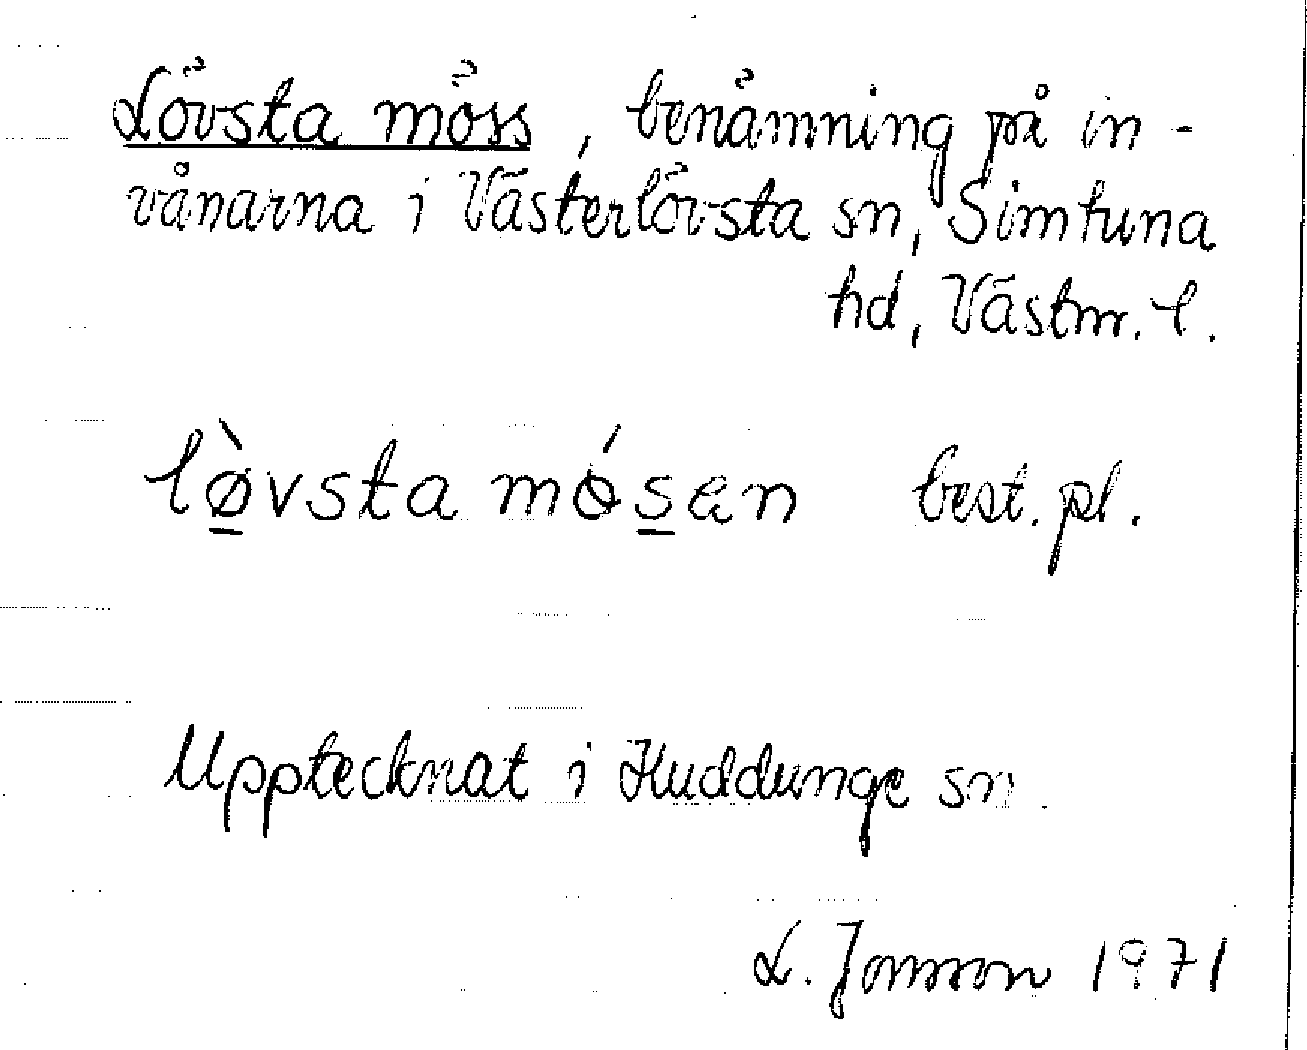 Lövsta möss, benämning på in-
vånarna i Västerlövsta sn, Simtuna
hd, Västm. l.
lø̲̀vsta mǿs̲an best. pl.
Upptecknat i Huddunge sn.
L. Jonsson 1971